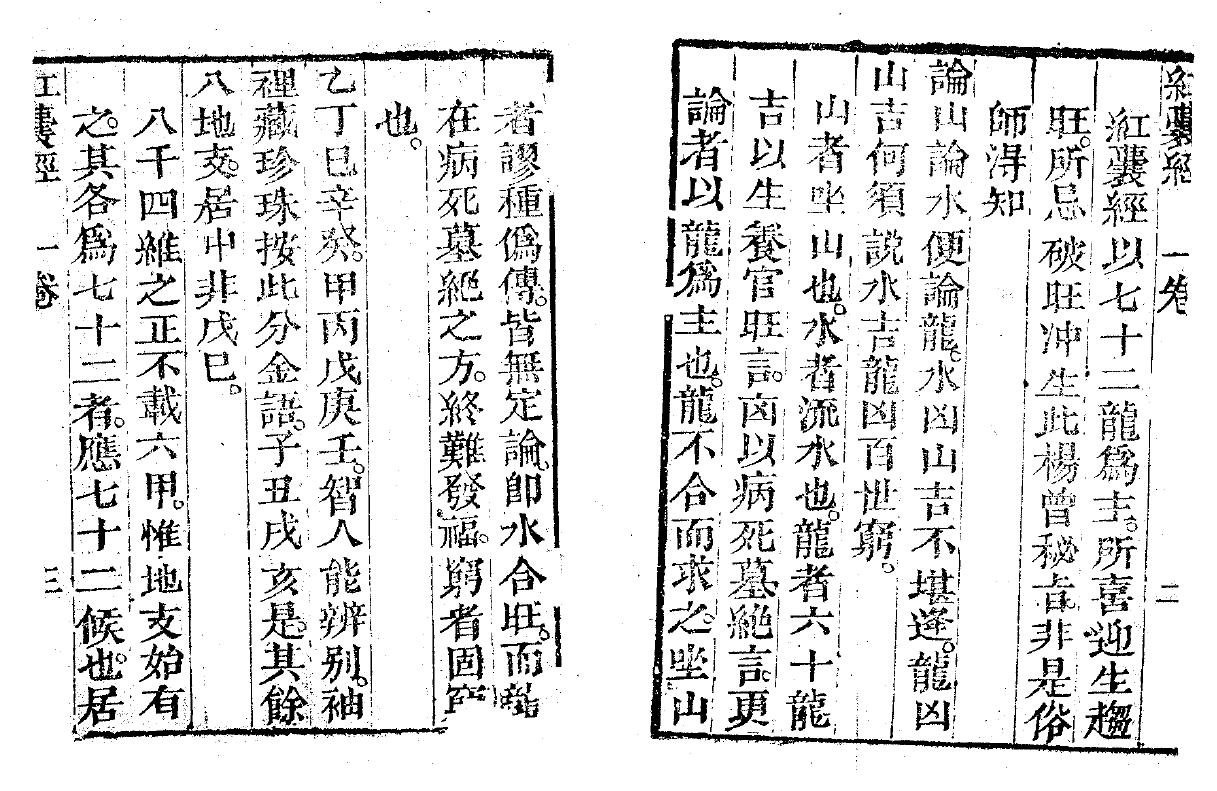 紅囊經 一卷 二
紅囊經以七十二龍爲主。所喜迎生趨
旺。所忌破旺冲生此楊曾秘旨。非是俗
師得知
論山論水便論龍。水凶山吉不堪逢。龍凶
山吉何須説水吉龍凶百世窮。
山者坐山也。水者流水也。龍者六十龍
吉以生養官旺言。凶以病死墓絶言。更
論者以龍爲主也。龍不合而求之。坐山
者謬種僞傳。皆無定論。即水合旺。而龍
在病死墓絶之方。終難發福。窮者固窮
也。
乙丁巳辛癸。甲丙戊庚壬。智人能辨别。袖
裡藏珍珠按此分金語。子丑戌亥是。其餘
八地支。居中非戊巳。
八干四維之正不載六甲。惟地支始有
之。其各爲七十二者。應七十二候也。居
紅囊經 一卷 三